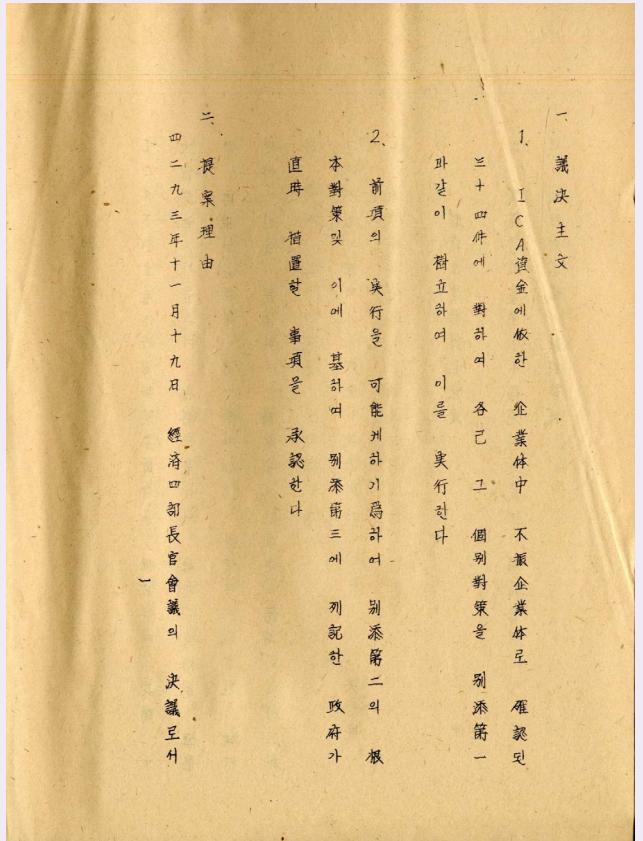 一、議決主文
1、ICA資金에依한 企業体中 不振企業体로 確認된
三十四件에 對하여 各己 그 個別對策을 別添第一
과같이 樹立하여 이를 実行한다
2、前項의 実行을 可能케하기爲하여 別添第二의 根
本對策및 이에 基하여 別添第三에 列記한 政府가
直時 措置할 事項을 承認한다
二、提案理由
四二九三年十一月十九日 經済四部長官會議의 決議로서
一